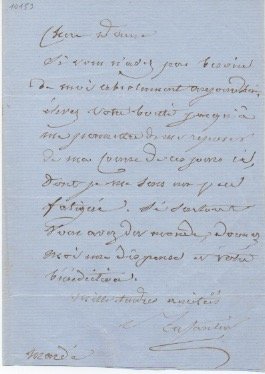 10152
Chère Dame
Si vous n'avez pas besoin
de moi absolument aujourd'hui,
votre bonté jusqu'à
me permettre de me reposer
de ma course de ces jours ci
dont je me sens un peu
fatiguée. Si surtout
vous avez du monde, donnez
moi une dispense et votre
bénédiction.
Mille tendres amitiés
Mardi